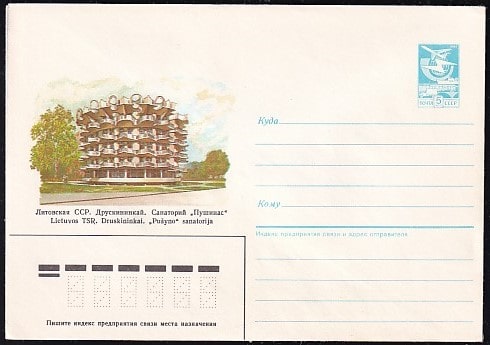 ПОЧТА 5 К СССР
Куда
Литовская ССР. Друскининкай. Санаторий „Пушинас“
Lietuvos TSR. Druskininkai. „Pušyno“ sanatorija
Кому
Индекс предприятия связи и адрес отправителя
Пишите индекс предприятия связи места назначения